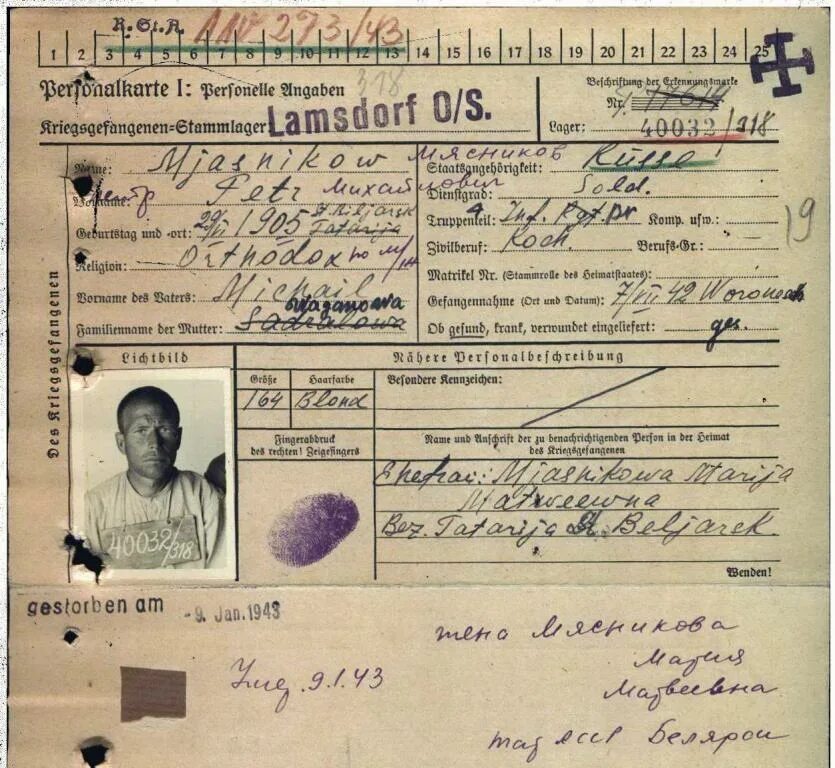 R. St. A. 273/43
1 2 3 4 5 6 7 8 9 10 11 12 13 14 15 16 17 18 19 20 21 22 23 24 25
Personalkarte I: Personelle Angaben
318
Kriegsgefangenen-Stammlager Lamsdorf O/S.
Beschriftung der Erkennungsmarke
Nr. 77614
Lager: 40032/318
Des Kriegsgefangenen
Name: Mjasnikow Мясников
Petr Михайлович
Geburtstag und -ort: 1905
Tatarija
Religion: Orthodox
Vorname des Vaters: Michail
Familienname der Mutter:
Staatsangehörigkeit: Russe
Dienstgrad: Sold.
Truppenteil: Inf. Rgt. Komp. usw.:
Zivilberuf: Koch Berufs-Gr.:
Matrikel Nr. (Stammrolle des Heimatstaates):
Gefangennahme (Ort und Datum): 7/VII 42 Woronesh
Ob gesund, krank, verwundet eingeliefert: ges.
19
Lichtbild
Nähere Personalbeschreibung
Größe Haarfarbe Besondere Kennzeichen:
164 Blond
Fingerabdruck
des rechten! Zeigefingers
Name und Anschrift der zu benachrichtigenden Person in der Heimat
des Kriegsgefangenen
Ehefrau: Mjasnikowa Marija
Matweewna
Bez. Tatarija St. Beljarek.
40032/318
Wenden!
gestorben am - 9. Jan. 1943
9.1.43
жена Мясникова
Мария
Матвеевна